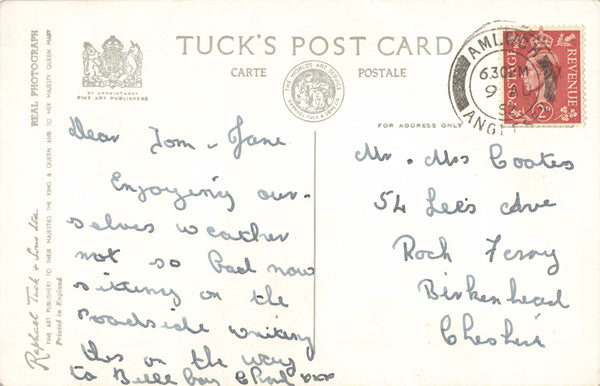 TUCK'S POST CARD
CARTE POSTALE
BY APPOINTMENT
FINE ART PUBLISHERS
THE WORLD'S ART SERVICE
RAPHAEL TUCK & SONS LTD
FOR ADDRESS ONLY
REAL PHOTOGRAPH
Raphael Tuck & Sons Ltd.
FINE ART PUBLISHERS TO THEIR MAJESTIES THE KING & QUEEN AND TO HER MAJESTY QUEEN MARY
Printed in England
AMLWCH
630PM
9
ANGL
POSTAGE
REVENUE
2D
Dear Tom & Jane
Enjoying our-
selves weather
not so bad now
sitting on the
roadside writing
this on the way
to Bull bay
Mr. Mrs Coates
54 Lees Ave
Rock Ferry
Birkenhead
Cheshire